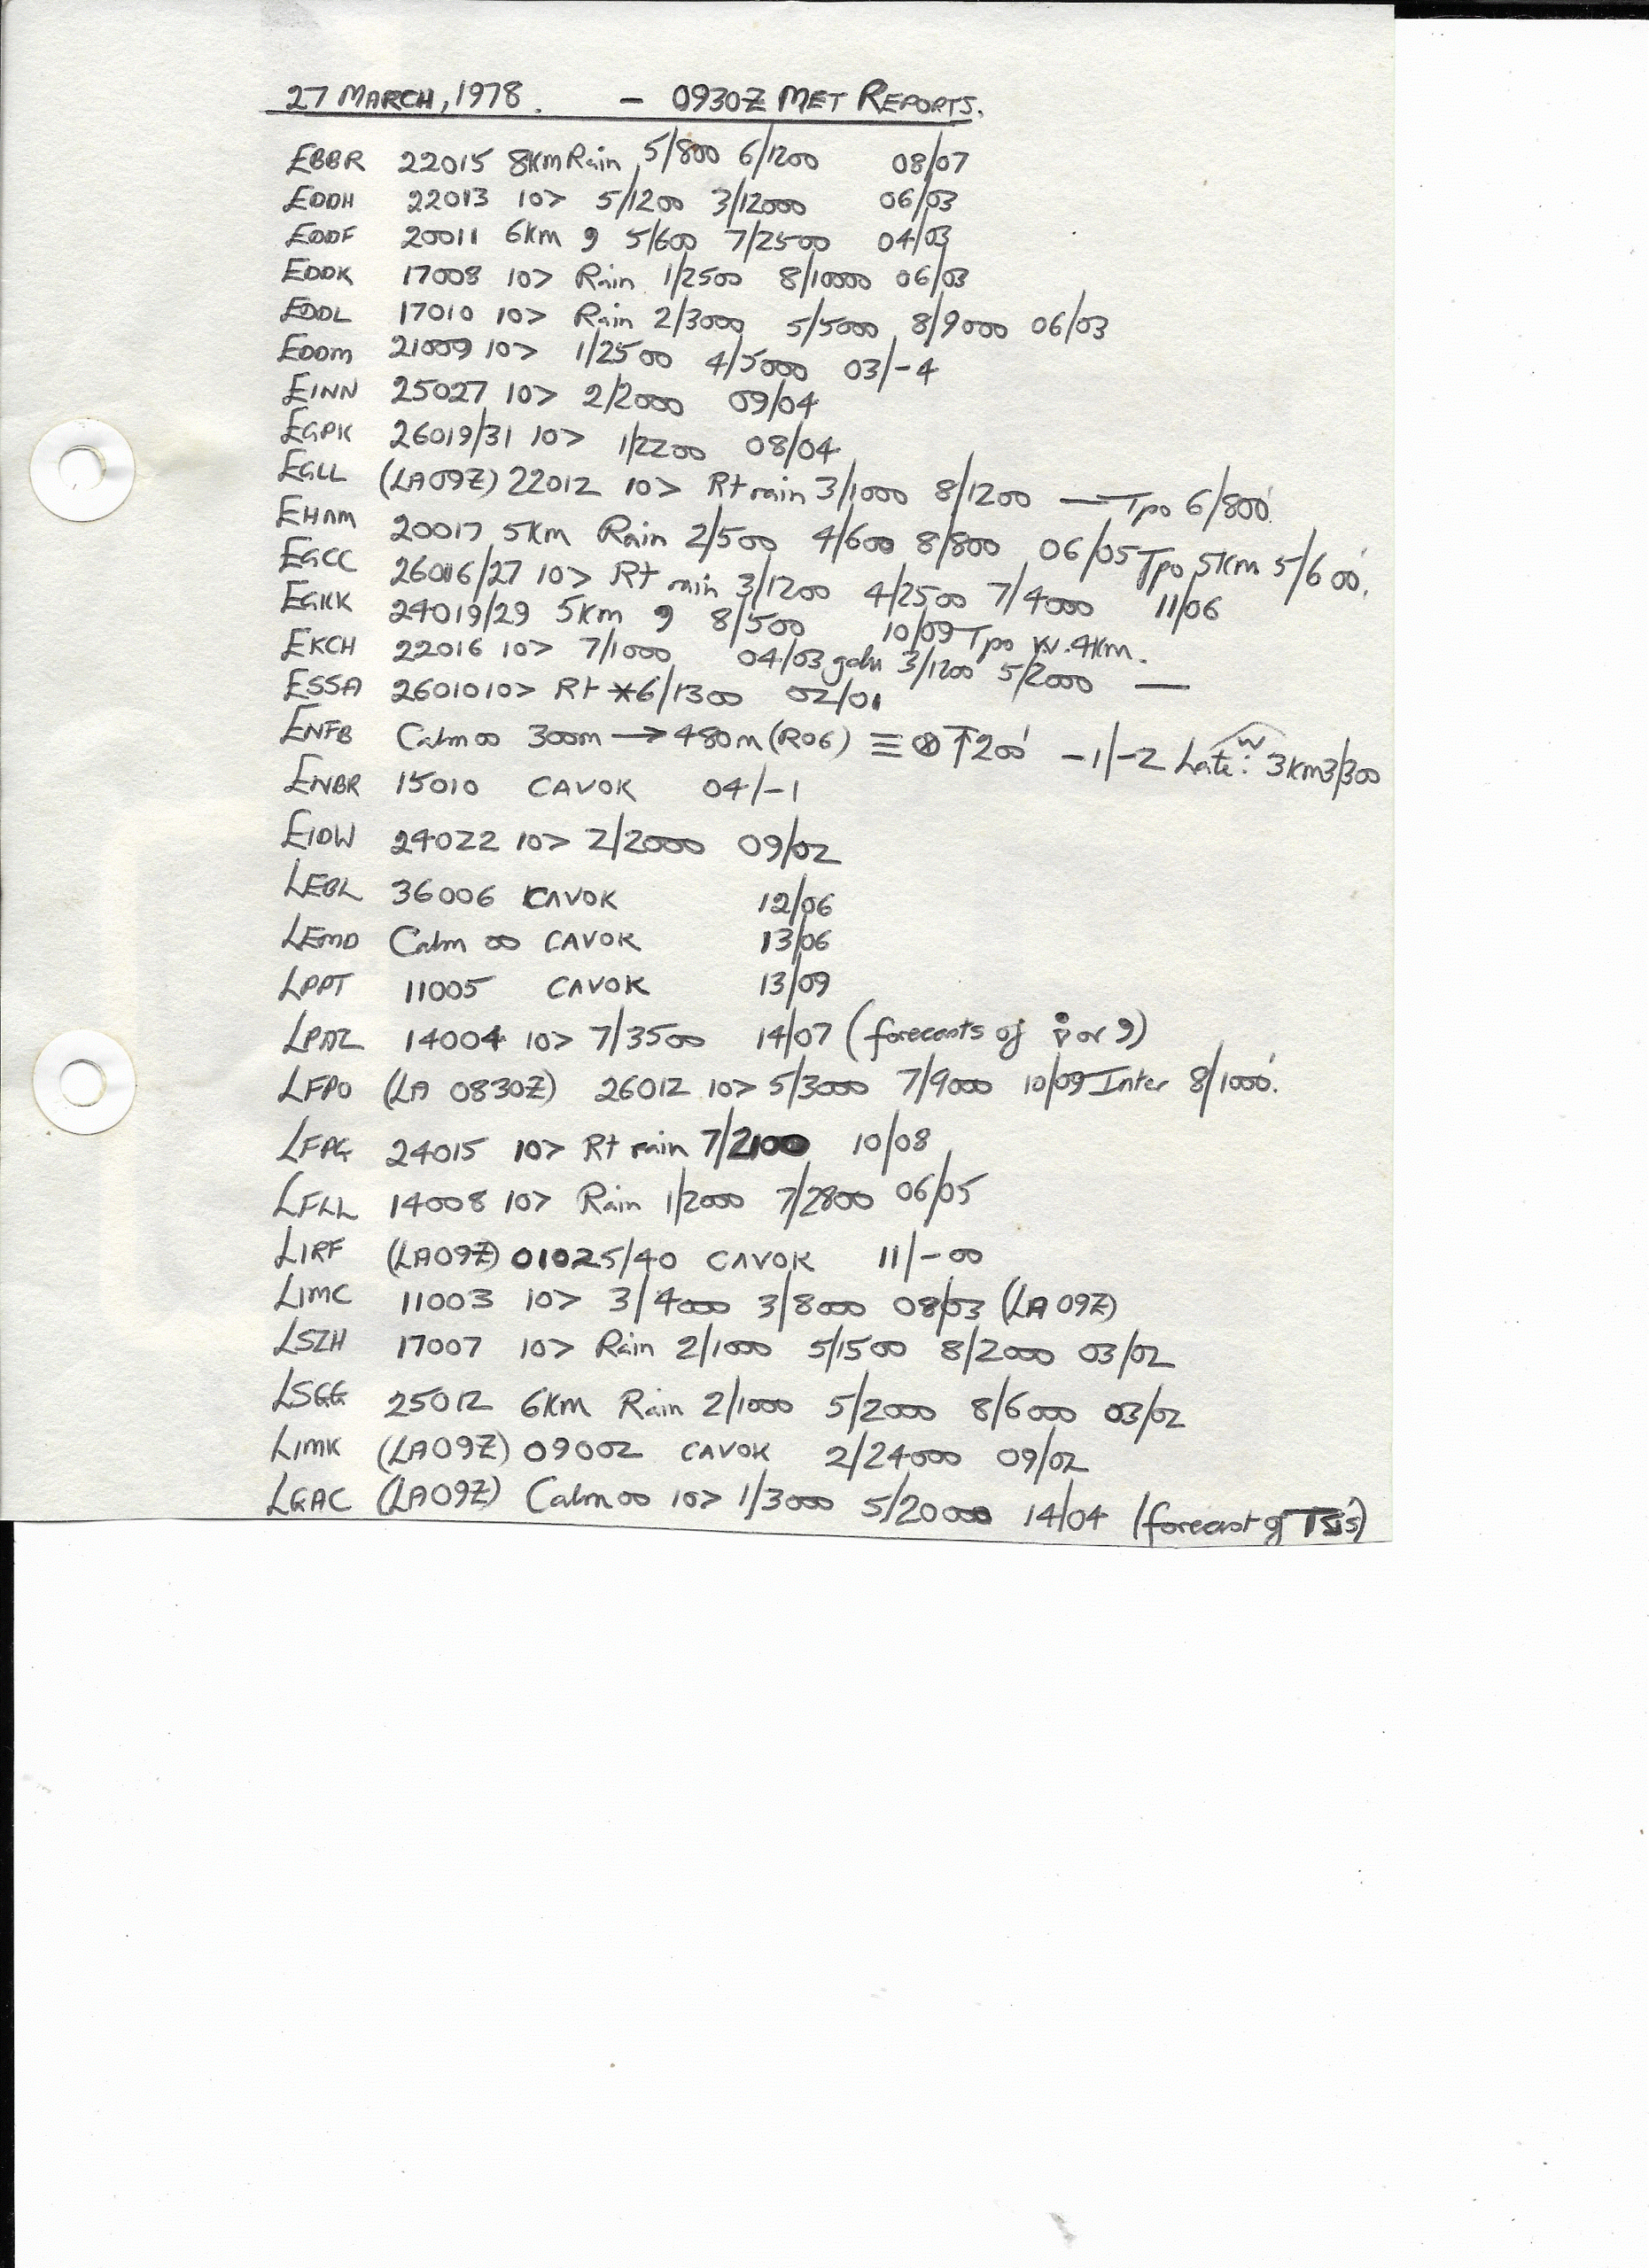 27 MARCH, 1978. - 0930Z MET REPORTS.
EBBR 22015 8km Rain 5/800 6/1200 08/07
EDDH 22013 10> 5/1200 3/12000 06/03
EDDF 20011 6km 9 5/600 7/2500 04/03
EDDK 17008 10> Rain 1/2500 8/10000 06/03
EDDL 17010 10> Rain 2/3000 5/5000 8/9000 06/03
EDDM 21009 10> 1/2500 4/5000 03/-4
EINN 25027 10> 2/2000 09/04
EGPK 26019/31 10> 1/2200 08/04
EGLL (LA09Z) 22012 10> Rt rain 3/1000 8/1200 — Tpo 6/800'
EHAM 20017 5km Rain 2/500 4/600 8/800 06/05 Tpo 5km 5/600'.
EGCC 26016/27 10> Rt rain 3/1200 4/2500 7/4000 11/06
EGKK 24019/29 5km 9 8/500 10/09 Tpo W.4km.
EKCH 22016 10> 7/1000 04/03 gdu 3/1200 5/2000 —
ESSA 26010 10> Rt *6/1300 02/01
ENFB Calm 00 300m → 480m (R06) ≡ ⊗ ↑ 200' -1/-2 Late: W 3km 3/300
ENBR 15010 CAVOK 04/-1
EIDW 24022 10> 2/2000 09/02
LEBL 36006 CAVOK 12/06
LEMD Calm 00 CAVOK 13/06
LPPT 11005 CAVOK 13/09
LPAZ 14004 10> 7/3500 14/07 (forecasts of or 9)
LFPO (LA 0830Z) 26012 10> 5/3000 7/9000 10/09 Inter 8/1000'.
LFPG 24015 10> Rt rain 7/2100 10/08
LFLL 14008 10> Rain 1/2000 7/2800 06/05
LIRF (LA09Z) 01025/40 CAVOK 11/-00
LIMC 11003 10> 3/4000 3/8000 08/03 (LA 09Z)
LSZH 17007 10> Rain 2/1000 5/1500 8/2000 03/02
LSGG 25012 6km Rain 2/1000 5/2000 8/6000 03/02
LIMK (LA09Z) 09002 CAVOK 2/24000 09/02
LGAC (LA09Z) Calm 00 10> 1/3000 5/20000 14/04 (forecast of TS's)